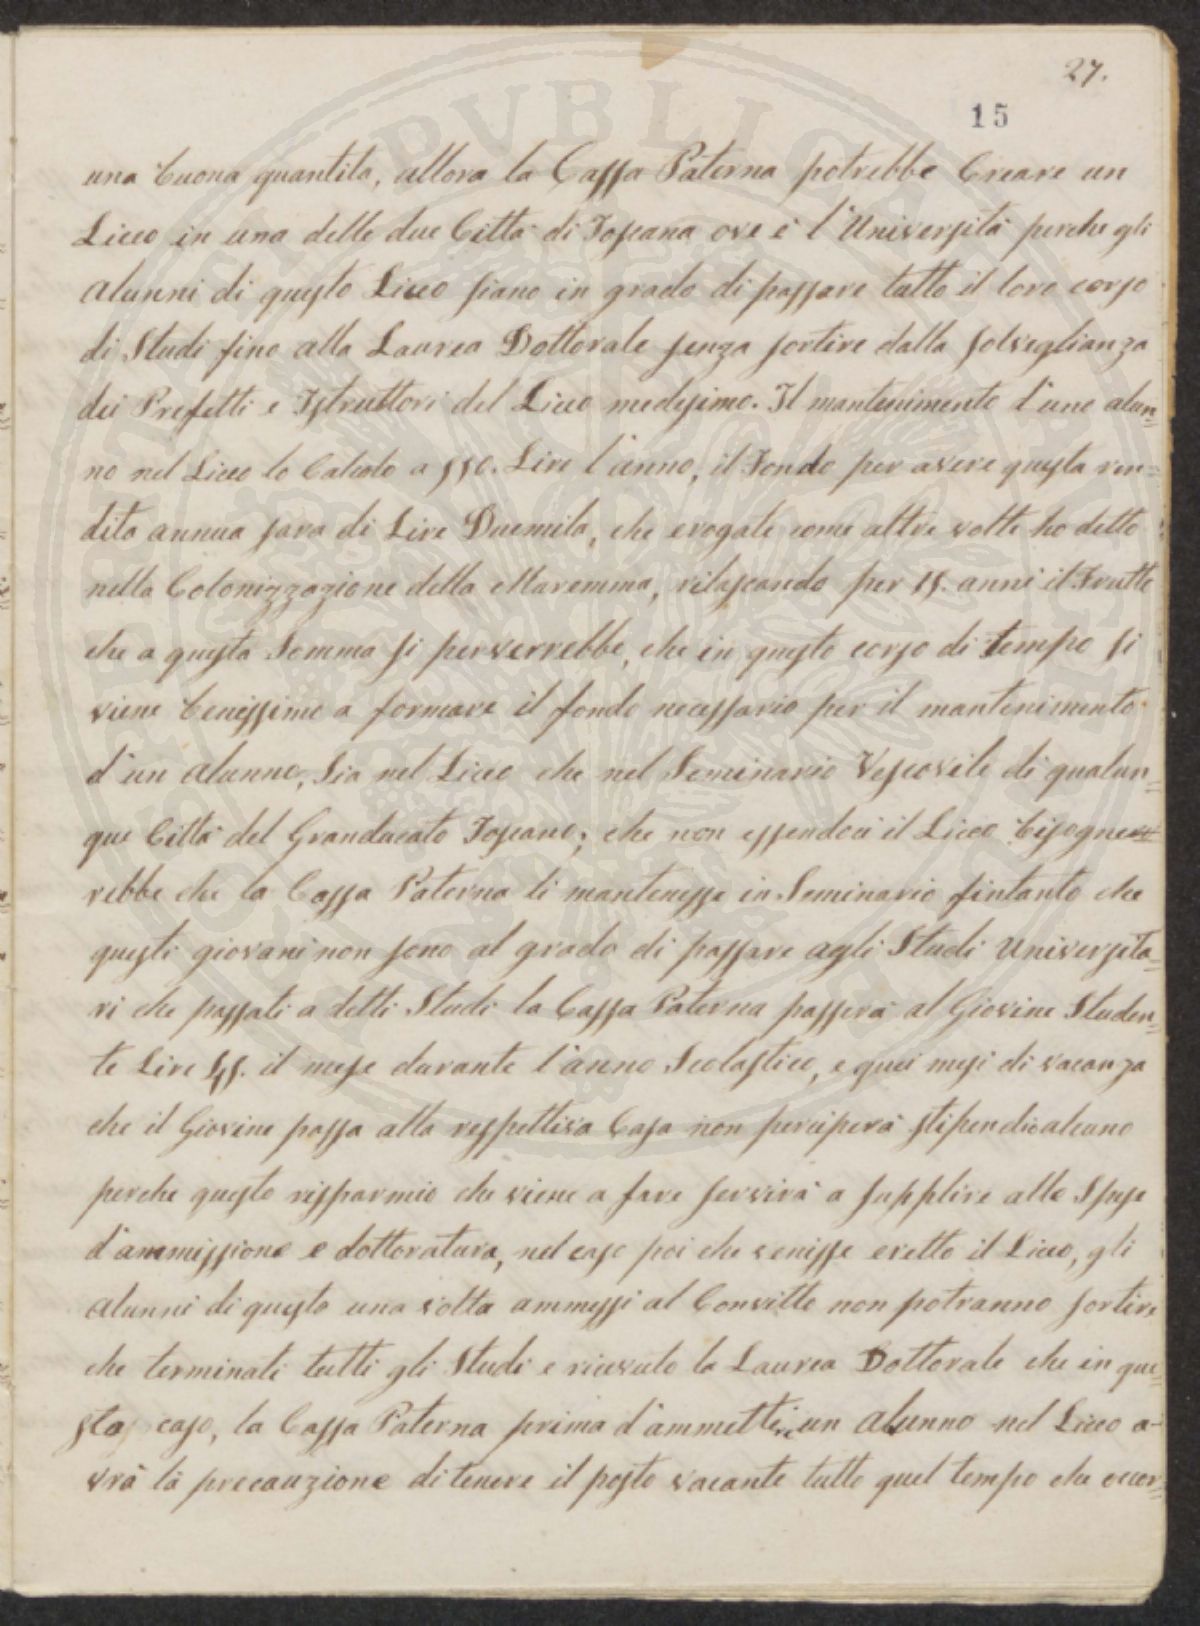 27.
15
una buona quantita, allora la Cassa Paterna potrebbe Creare un
Liceo in una delle due Città di Toscana ove è l'Università perche gli
alunni di questo Liceo siano in grado di passare tutto il loro corso
di Studi fino alla Laurea Dottorale senza sortire dalla solveglianza
dei Prefetti e Istruttori del Liceo medesimo. Il mantenimento d'uno alun=
no nel Liceo lo Calcolo a 550. Lire l'anno, il Fondo per avere questa ren=
dita annua sara di Lire Duemila, che erogate come altre volte ho detto
nella Colonizzazione della Maremma, rilasciando per 15. anni il Frutto
che a questa Somma si perverrebbe, che in questo corso di tempo si
viene benissimo a formare il fondo necessario per il mantenimento
d'un alunno, Sia nel Liceo che nel Seminario Vescovile di qualun=
que Città del Granducato Toscano; che non essendoci il Liceo bisogne=
rebbe che la Cassa Paterna li mantenisse in Seminario fintanto che
questi giovani non sono al grado di passare agli Studi Universita=
ri che passati a detti Studi la Cassa Paterna passerà al Giovine Studen=
te Lire 55. il mese durante l'anno Scolastico, e quei mesi di vacanza
che il Giovine passa alla respettiva Casa non perciperà stipendio alcuno
perche questo risparmio che viene a fare servirà a supplire alle Spese
d'ammissione e dottoratura, nel caso poi che venisse eretto il Liceo, gli
alunni di questo una volta ammessi al Convitto non potranno sortire
che terminati tutti gli Studi e ricevuto la Laurea Dottorale che in que=
sto caso, la Cassa Paterna prima d'ammettere un alunno nel Liceo a=
vrà la precauzione di tenere il posto vacante tutto quel tempo che occor=